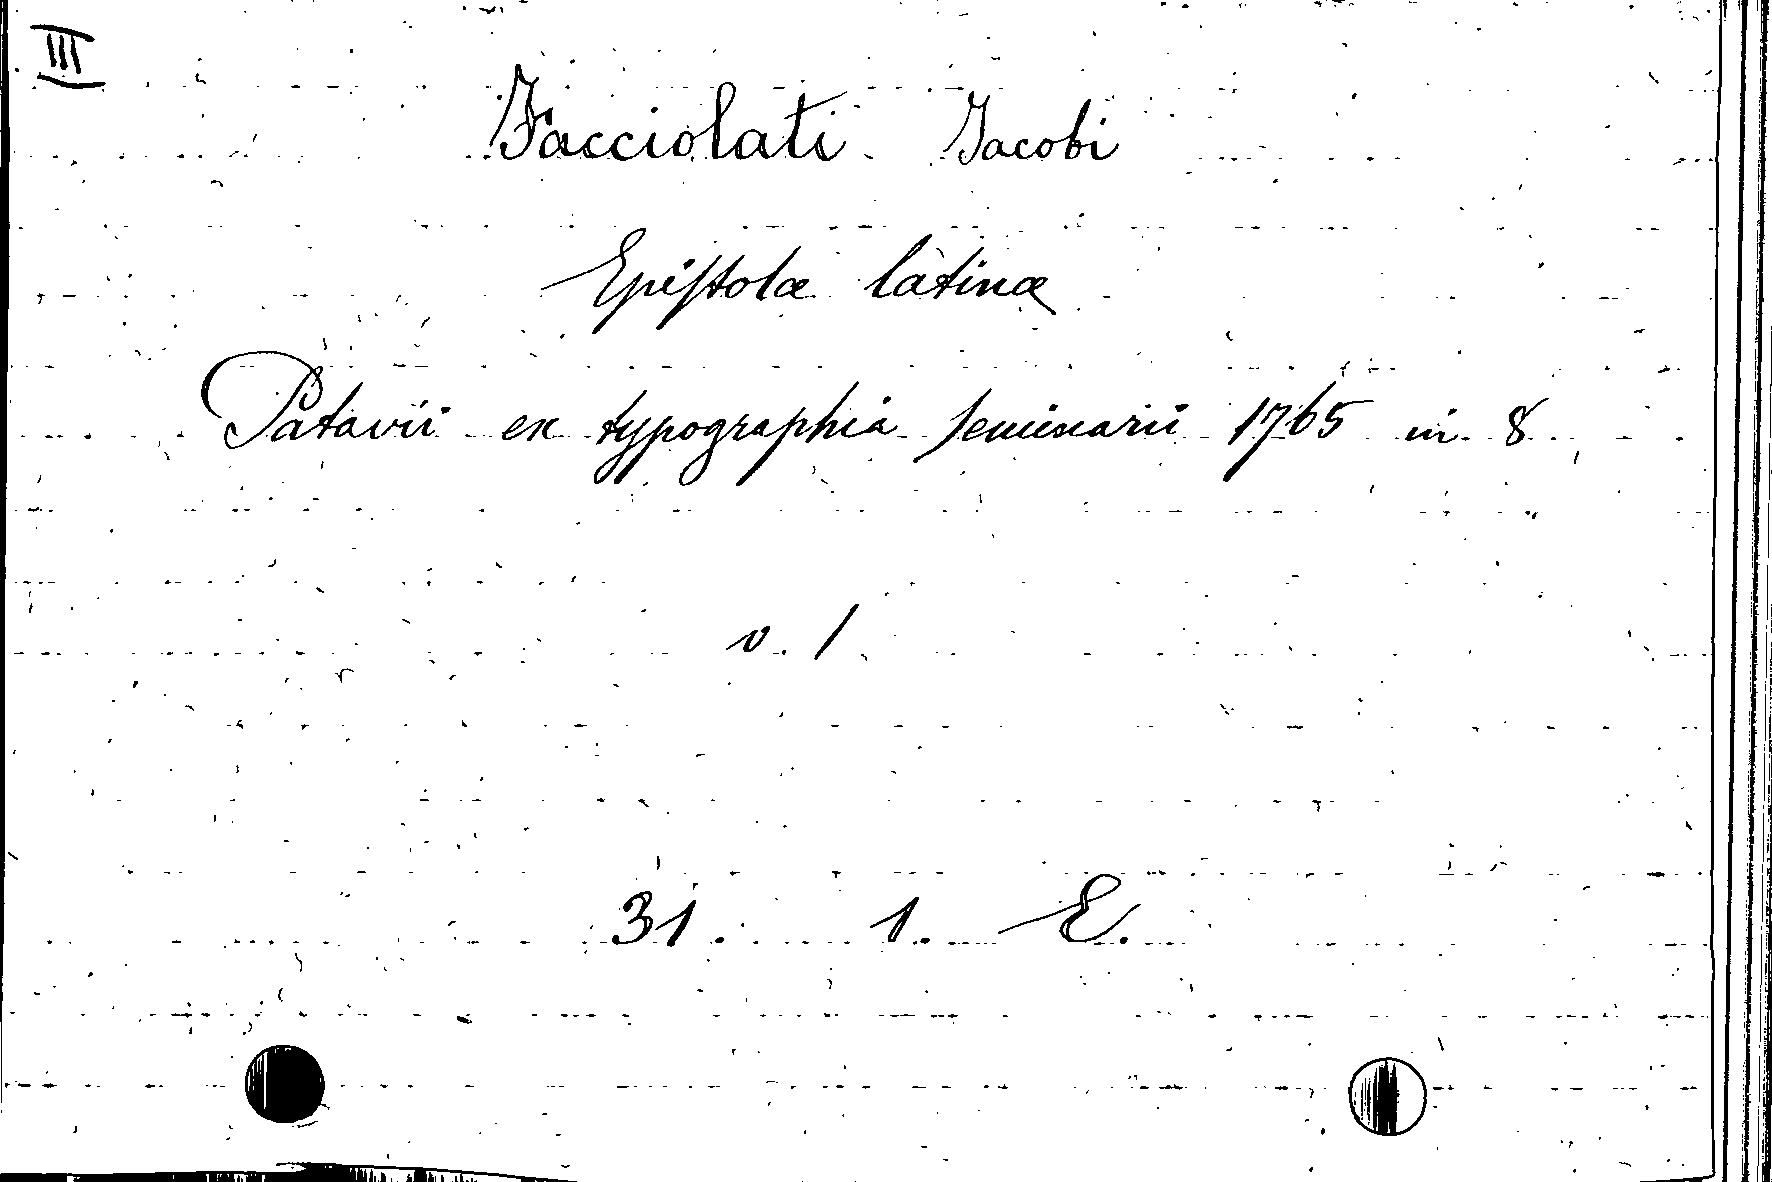 III
Facciolati Jacobi
Epistolæ latinæ
Patavii ex typographia seminarii 1765 in 8
v. 1
31. 1. E.